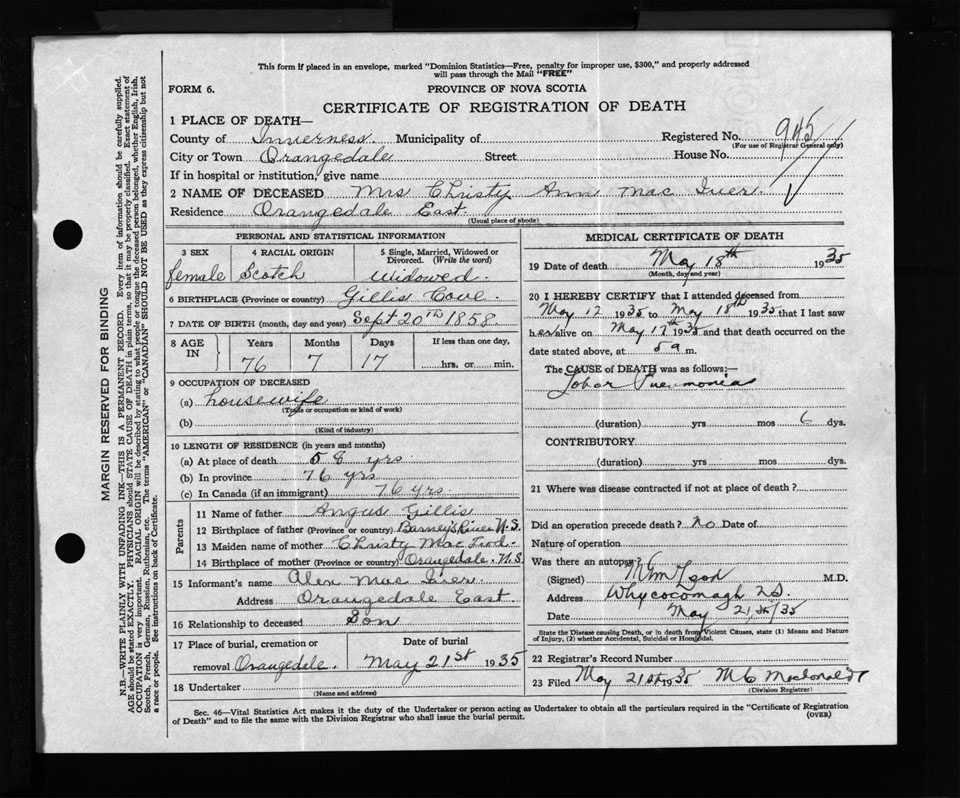 This form if placed in an envelope, marked "Dominion Statistics—Free, penalty for improper use, $300," and properly addressed
will pass through the Mail "FREE"
FORM 6.
PROVINCE OF NOVA SCOTIA
CERTIFICATE OF REGISTRATION OF DEATH
1 PLACE OF DEATH—
County of Inverness Municipality of Registered No. 945
(For use of Registrar General only)
City or Town Orangedale Street House No.
If in hospital or institution, give name
2 NAME OF DECEASED Mrs Christy Ann Mac Iver
Residence Orangedale East
(Usual place of abode)
PERSONAL AND STATISTICAL INFORMATION
3 SEX 4 RACIAL ORIGIN 5 Single, Married, Widowed or
Divorced. (Write the word)
female Scotch Widowed.
6 BIRTHPLACE (Province or country) Gillis Cove.
7 DATE OF BIRTH (month, day and year) Sept 20TH 1858.
8 AGE IN Years Months Days If less than one day,
76 7 17 hrs. or min.
9 OCCUPATION OF DECEASED
(a) housewife
(Trade or occupation or kind of work)
(b)
(Kind of industry)
10 LENGTH OF RESIDENCE (in years and months)
(a) At place of death 58 yrs
(b) In province 76 yrs
(c) In Canada (if an immigrant) 76 yrs.
Parents
11 Name of father Angus Gillis
12 Birthplace of father (Province or country) Barney's River N.S.
13 Maiden name of mother Christy Mac Leod.
14 Birthplace of mother (Province or country) Orangedale. N.S
15 Informant's name Alex Mac Iver.
Address Orangedale East.
16 Relationship to deceased Son
17 Place of burial, cremation or Date of burial
removal Orangedale. May 21st 1935
18 Undertaker
(Name and address)
MEDICAL CERTIFICATE OF DEATH
19 Date of death May 18th 1935
(Month, day and year)
20 I HEREBY CERTIFY that I attended deceased from
May 12 1935 to May 18th 1935 that I last saw
her alive on May 17th 1935 and that death occurred on
date stated above, at 5 a m.
The CAUSE of DEATH was as follows:—
Lobar Pneumonia
(duration) yrs mos 6 dys.
CONTRIBUTORY
(duration) yrs mos dys.
21 Where was disease contracted if not at place of death?
Did an operation precede death? no Date of
Nature of operation
Was there an autopsy?
(Signed) M.D.
Address Whycocomagh N.S.
Date May 21, 35/35
State the Disease causing Death, or in death from Violent Causes, state (1) Means and Nature
of Injury, (2) whether Accidental, Suicidal or Homicidal.
22 Registrar's Record Number
23 Filed May 21st 1935 M C Macdonald
(Division Registrar)
Sec. 46—Vital Statistics Act makes it the duty of the Undertaker or person acting as Undertaker to obtain all the particulars required in the "Certificate of Registration
of Death" and to file the same with the Division Registrar who shall issue the burial permit.
(OVER)
MARGIN RESERVED FOR BINDING
N.B.—WRITE PLAINLY WITH UNFADING INK—THIS IS A PERMANENT RECORD. Every item of information should be carefully supplied.
AGE should be stated EXACTLY. PHYSICIANS should STATE CAUSE OF DEATH in plain terms, so that it may be properly classified. Exact statement of
OCCUPATION is very important. RACIAL ORIGIN will be described by stating to what people or tongue the deceased person belonged, whether English, Irish,
Scotch, French, German, Russian, Ruthenian, etc. The terms "AMERICAN" or "CANADIAN" SHOULD NOT BE USED as they express citizenship but not
a race or people. See instructions on back of Certificate.